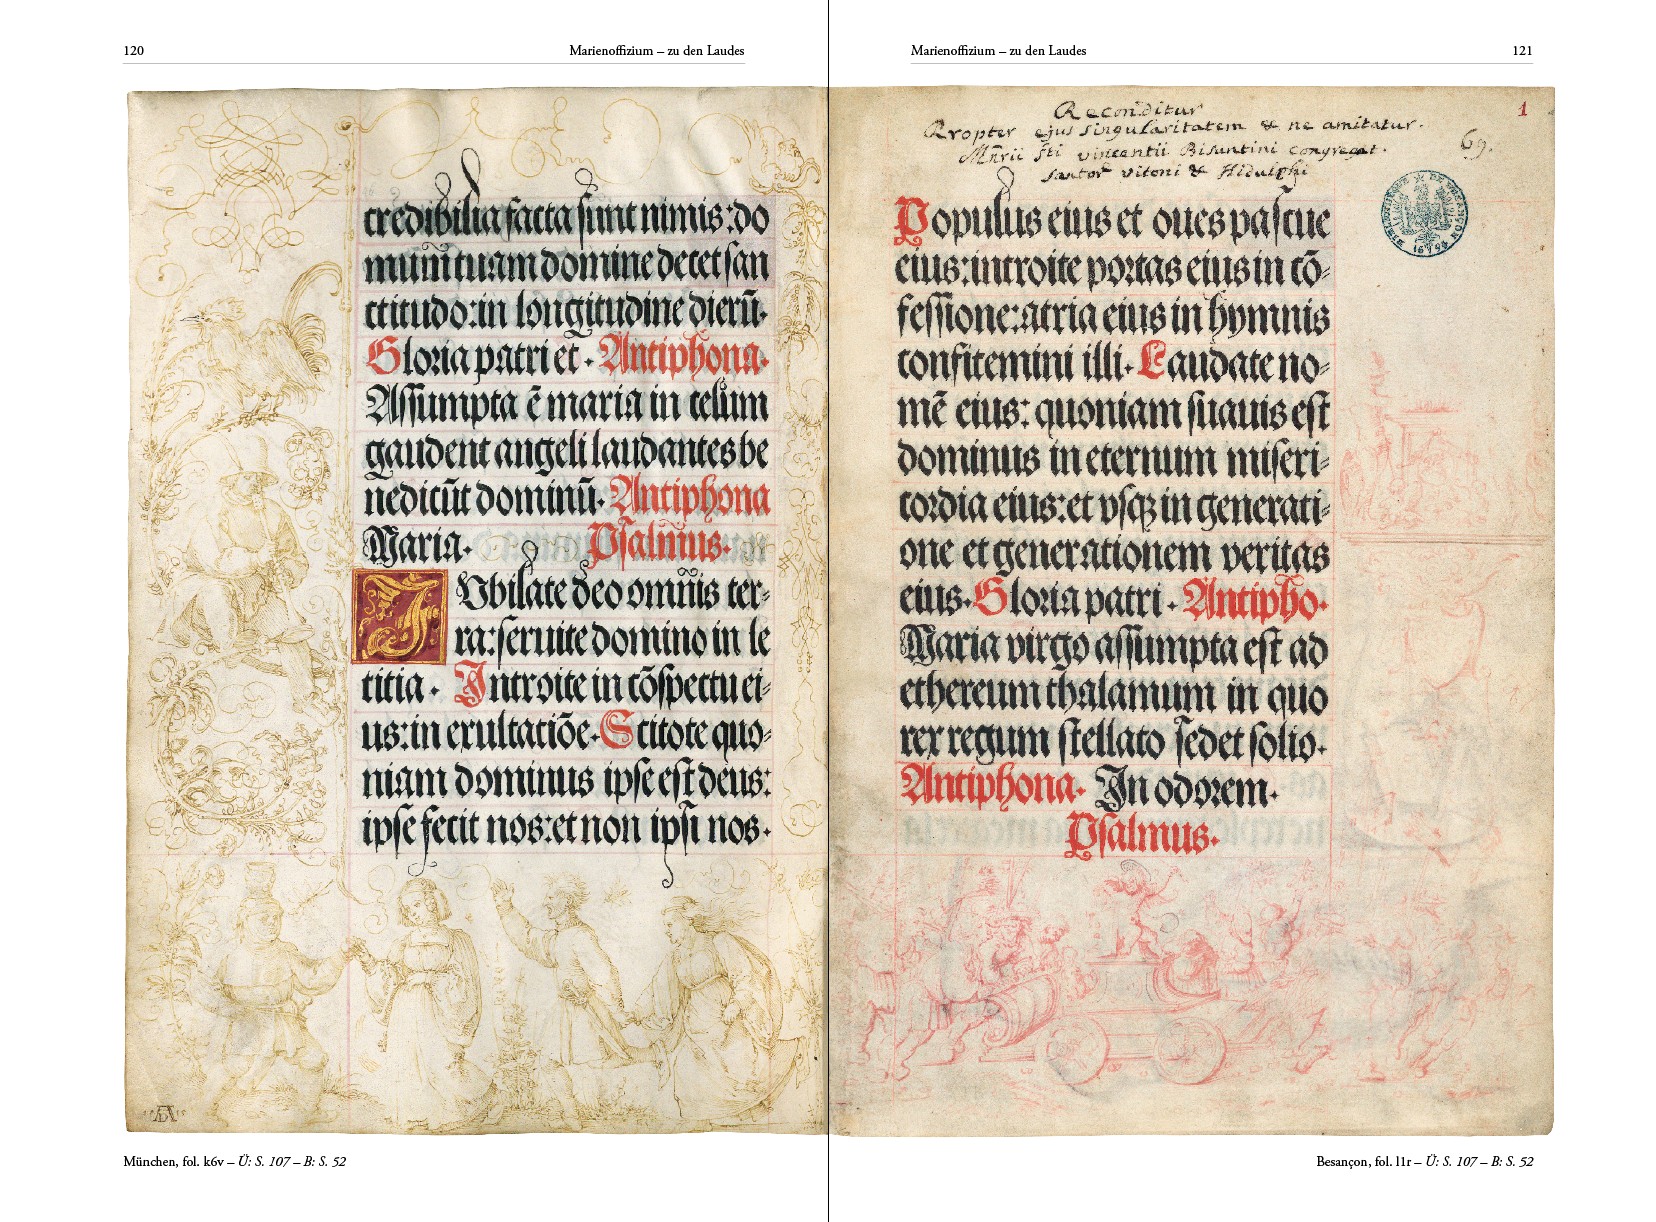 120
Marienoffizium – zu den Laudes
credibilia facta sunt nimis: do
mum tuam domine decet san
ctitudo: in longitudine dierū.
Gloria patri et. Antiphona.
Assumpta ē maria in celum
gaudent angeli laudantes be
nedicūt dominū. Antiphona
Maria. Psalmus.
IVbilate deo omnis ter⸗
ra: seruite domino in le
titia. Introite in cōspectu ei⸗
us: in exultatiōe. Scitote quo⸗
niam dominus ipse est deus:
ipse fecit nos: et non ipsi nos.
AD
München, fol. k6v – Ü: S. 107 – B: S. 52
Marienoffizium – zu den Laudes
121
1
Reconditur
Propter ejus singularitatem & ne amitatur.
69.
Mñrii sti vincentii Bisuntini congregat.
sanctor vitoni & Hidulphi
Populus eius et oues pascue
eius: introite portas eius in cō⸗
fessione: atria eius in hymnis
confitemini illi. Laudate no⸗
mē eius: quoniam suauis est
dominus in eternum miseri⸗
cordia eius: et vsqꝫ in generati⸗
one et generationem veritas
eius. Gloria patri. Antipho.
Maria virgo assumpta est ad
ethereum thalamum in quo
rex regum stellato sedet solio.
Antiphona. In odorem.
Psalmus.
Besançon, fol. l1r – Ü: S. 107 – B: S. 52